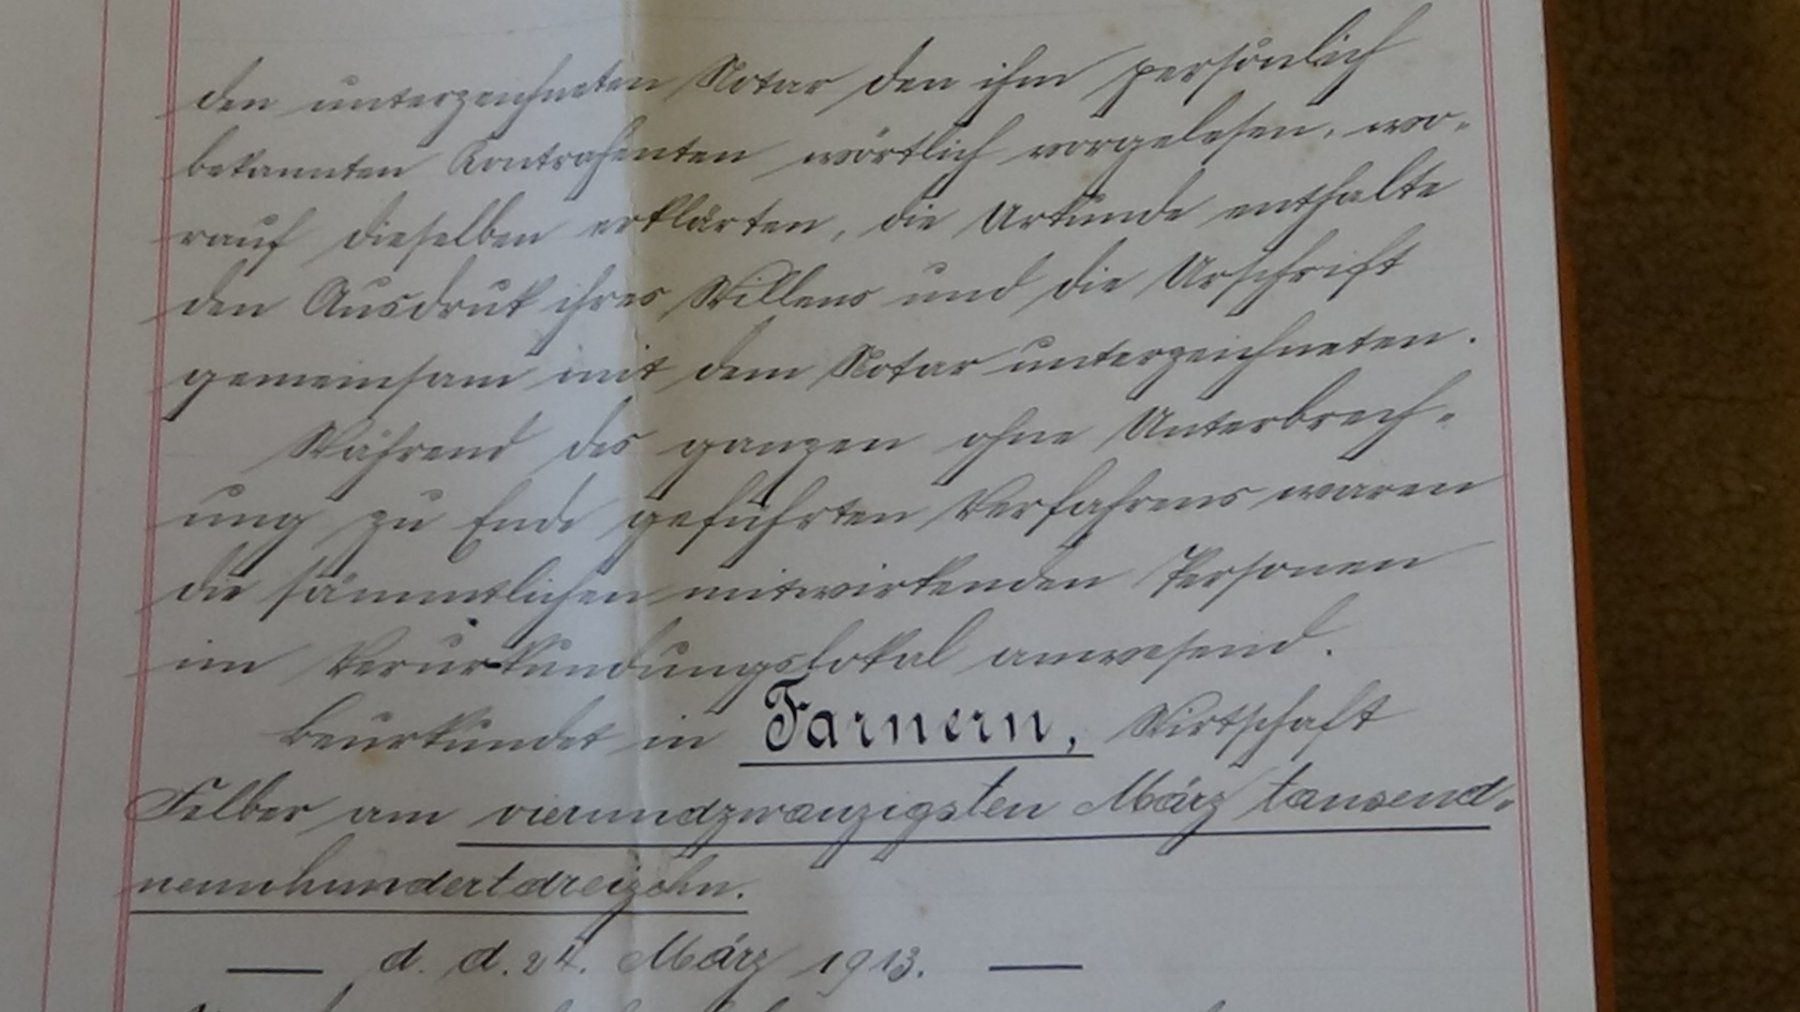 den unterzeichneten Notar den ihm persönlich
bekannten Kontrahenten wörtlich vorgelesen, wo-
rauf dieselben erklärten, die Urkunde enthalte
den Ausdruk ihres Willens und die Urschrift
gemeinsam mit dem Notar unterzeichneten.
Während des ganzen ohne Unterbrech-
ung zu Ende geführten Verfahrens waren
die sämmtlichen mitwirkenden Personen
im Verurkundungslokal anwesend.
Beurkundet in Farnern, Wirtschaft
Felber am vierundzwanzigsten März tausend-
neunhundertdreizehn.
— d. d. 24. März 1913. —